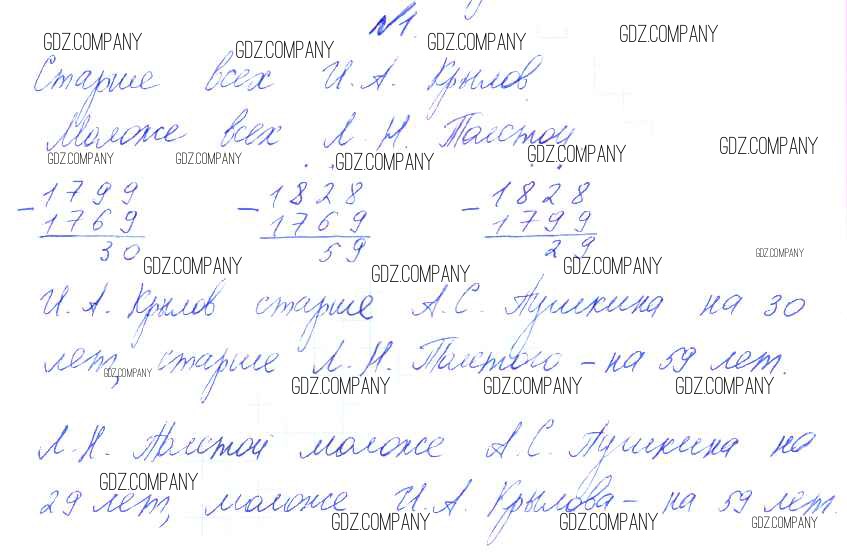 №1.
GDZ.COMPANY GDZ.COMPANY GDZ.COMPANY GDZ.COMPANY
Старше всех И. А. Крылов
Моложе всех Л. Н. Толстой
GDZ.COMPANY GDZ.COMPANY GDZ.COMPANY GDZ.COMPANY GDZ.COMPANY
- 1799 - 1828 - 1828
1769 1769 1799
30 59 29
GDZ.COMPANY GDZ.COMPANY GDZ.COMPANY GDZ.COMPANY
И. А. Крылов старше А. С. Пушкина на 30
лет, старше Л. Н. Толстого - на 59 лет.
GDZ.COMPANY GDZ.COMPANY GDZ.COMPANY GDZ.COMPANY
Л. Н. Толстой моложе А. С. Пушкина на
GDZ.COMPANY
29 лет, моложе И. А. Крылова - на 59 лет.
GDZ.COMPANY GDZ.COMPANY GDZ.COMPANY